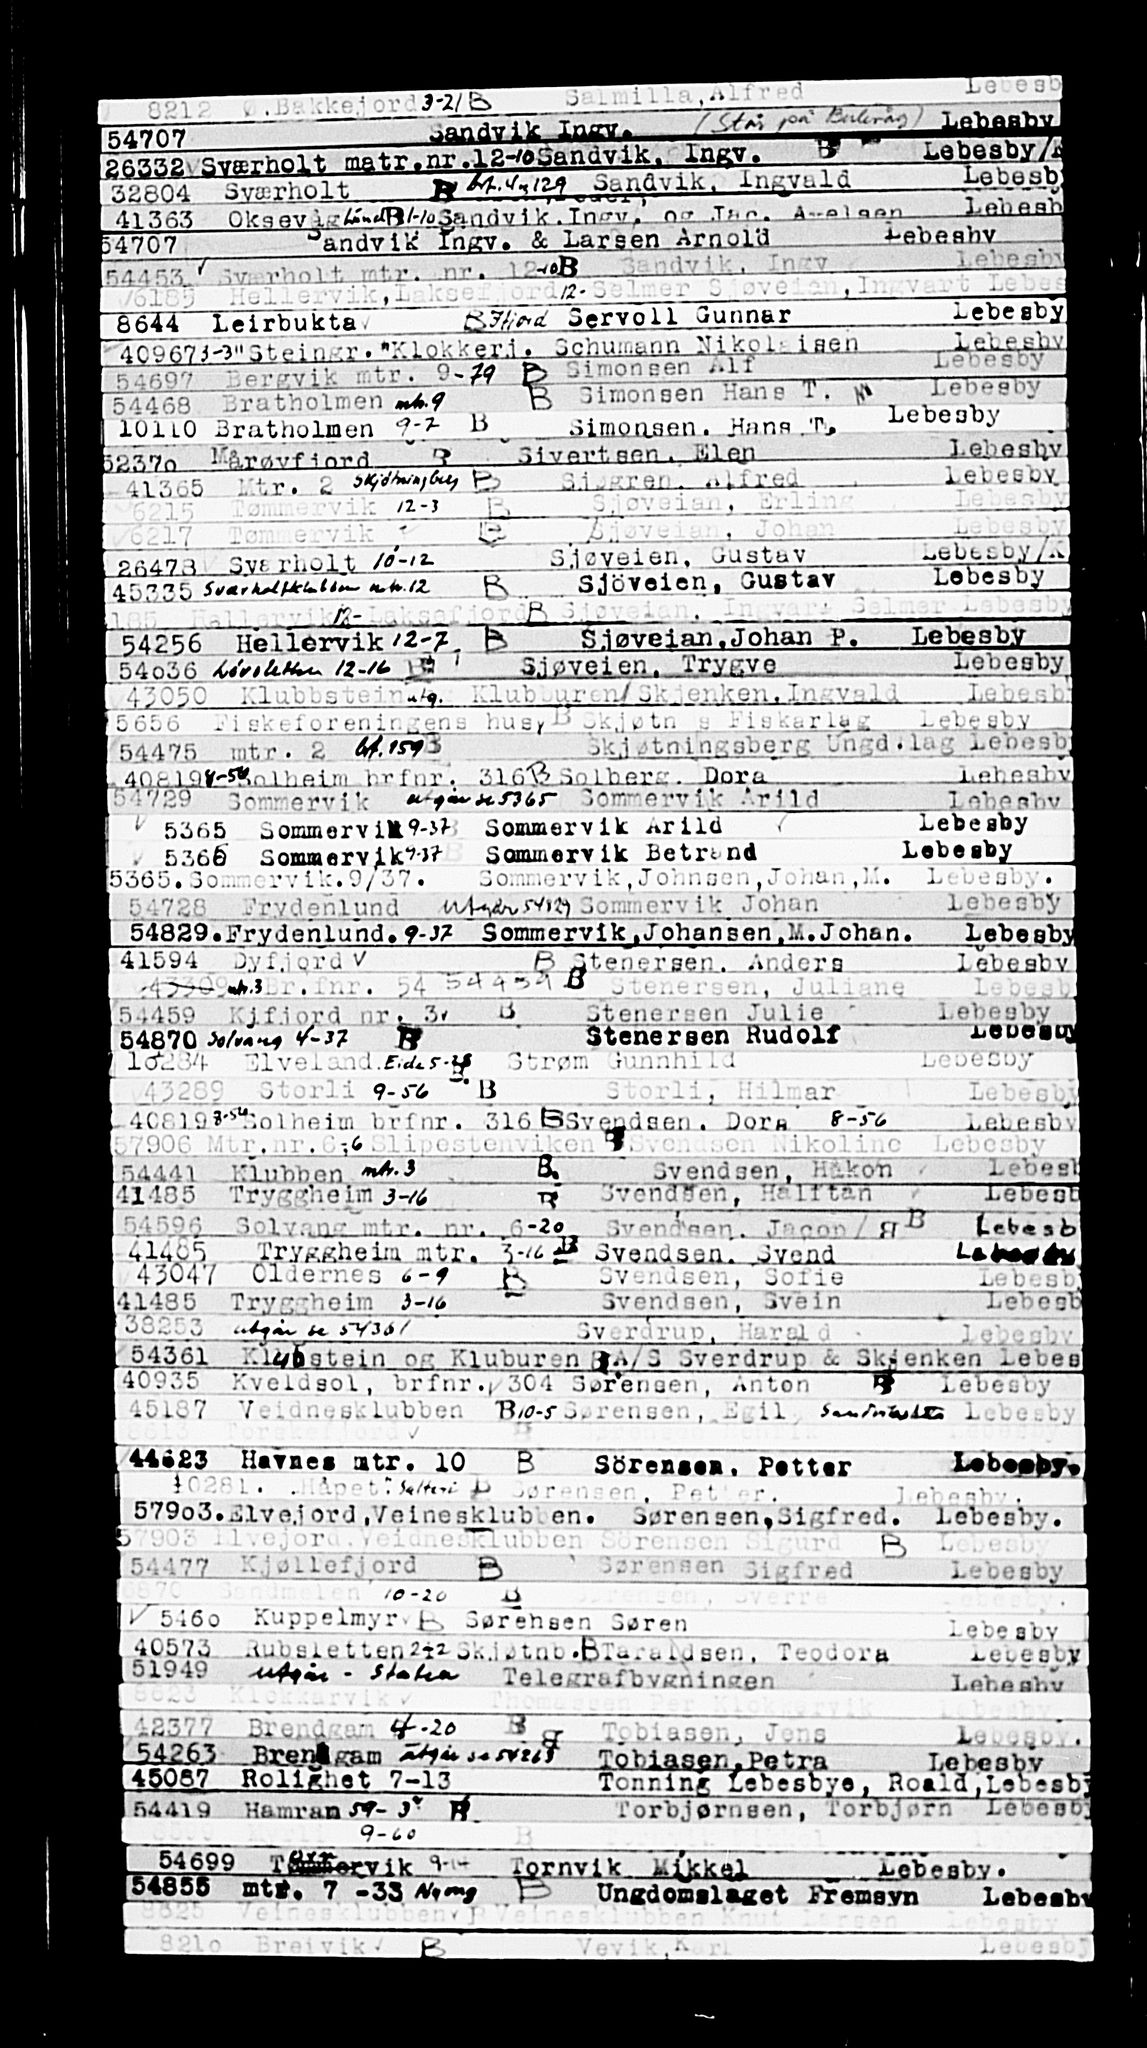 8212 Ø.Bakkejord 3-21 B Salmilla,Alfred Lebesb
54707 Sandvik Ingv. (Står på) Lebesby
26332 Sværholt matr.nr.12-10 Sandvik, Ingv. B Lebesby/K
32804 Sværholt B brf. 129 Sandvik, Ingvald Lebesby
41363 Oksevåg B 1-10 Sandvik.Ingv. og Jac. Axelsen Lebesb
54707 Sandvik Ingv. & Larsen Arnold Lebesby
54453 Sværholt mtr. nr. 12-10 B Sandvik, Ingv Lebesby
6185 Hellervik,Laksefjord 12- Selmer Sjøveien,Ingvart Lebes
8644 Leirbukta B Ifjord Servoll Gunnar Lebesby
40967 3-3 "Steingr." Klokkerj. Schumann Nikolaisen Lebesby
54697 Bergvik mtr. 9-79 B Simonsen Alf Lebesby
54468 Bratholmen mtr.9 B Simonsen Hans T. Lebesby
10110 Bratholmen 9-2 B Simonsen. Hans T. Lebesby
52370 Mårøyfjord B Sivertsen. Elen Lebesby
41365 Mtr. 2 Skjøtningberg B Sjøgren. Alfred Lebesby
6215 Tømmervik 12-3 B Sjøveian, Erling Lebesby
6217 Tømmervik B Sjøveian, Johan Lebesby
26478 Sværholt 10-12 Sjøveien, Gustav Lebesby/K
45335 Sværholtklubben mtr.12 B Sjöveien, Gustav Lebesby
185 Hellervik 12- Laksefjord B Sjøveian, Ingvart Selmer Lebesby
54256 Hellervik 12-7 B Sjøveian,Johan P. Lebesby
54036 12-16 B Sjøveien. Trygve Lebesby
43050 Klubbstein utg. Klubburen/Skjenken.Ingvald Lebesb
5656 Fiskeforeningens hus, B Skjøtn s Fiskarlag Lebesby
54475 mtr. 2 brf.159 B Skjøtningsberg Ungd.lag Lebesby
40819 8-56 Solheim brfnr. 316 B Solberg. Dora Lebesby
54729 Sommervik utgår se 5365 Sommervik Arild Lebesby
5365 Sommervik 9-37 B Sommervik Arild Lebesby
5366 Sommervik 9-37 B Sommervik Betrand Lebesby
5365.Sommervik.9/37. Sommervik,Johnsen,Johan,M. Lebesby.
54728 Frydenlund Utgår 54829 Sommervik Johan Lebesby
54829.Frydenlund.9-37 Sommervik,Johansen,M.Johan. Lebesby
41594 Dyfjord B Stenersen. Anders Lebesby
43309 mtr.3 Br.fnr. 54 54459 B Stenersen, Juliane Lebesb
54459 Kjfjord nr. 3. B Stenersen Julie Lebesby
54870 Solvang 4-37 B Stenersen Rudolf Lebesby
10284 Elveland.Eide 5-28 B. Strøm Gunnhild Lebesby
43289 Storli 9-56 B Storli, Hilmar Lebesby
40819 8-56 Solheim brfnr. 316 B Svendsen. Dora 8-56 Lebesby
57906 Mtr.nr.6;6 Slipestenviken B Svendsen Nikoline Lebesby
54441 Klubben mtr.3 B. Svendsen, Håkon Lebesb
41485 Tryggheim 3-16 B Svendsen, Halftan Lebesb
54596 Solvang mtr. nr. 6-20 Svendsen. Jacob/ B Lebesb
41485 Tryggheim mtr. 3-16 B Svendsen. Svend Lebesby
43047 Oldernes 6-9 B Svendsen, Sofie Lebesb
41485 Tryggheim 3-16 Svendsen, Svein Lebesb
38253 utgår se 54361 Sverdrup, Harald Lebesby
54361 Klubstein og Kluburen B A/S Sverdrup & Skjenken Lebes
40935 Kveldsol, brfnr. 304 Sørensen, Anton B Lebesby
45187 Veidnesklubben B 10-5 Sørensen, Egil Lebesby
8613 Torskefjord B
44623 Havnes mtr. 10 B Sörensen. Petter Lebesby.
10281. Håpet. B Sørensen, Petter. Lebesby.
57903.Elvejord,Veinesklubben. Sørensen,Sigfred. Lebesby.
57903 Elvejord,Veidnesklubben Sörensen Sigurd B Lebesby
54477 Kjøllefjord B Sørensen Sigfred Lebesby
6870 Sandmelen 10-20 B Sørensen, Sverre Lebesby.
5460 Kuppelmyr B Sørensen Søren Lebesby
40573 Rubsletten 2-2 Skjøtnb. B Taraldsen, Teodora Lebesby
51949 utgår - Staten Telegrafbygningen Lebesby
8623 Klokkarvik Thomassen Per Klokkervik Lebesby.
42377 Brendgam 4-20 B Tobiasen, Jens Lebesby.
54263 Brendgam utgår se 54263 Tobiasen,Petra Lebesby
45087 Rolighet 7-13 Tonning Lebesbye, Roald,Lebesby
54419 Hamran 59-3 B Torbjørnsen, Torbjørn Lebesby
9-60 B
54699 Tørrvik 9-14 Tornvik Mikkel Lebesby.
54855 mtr. 7 -33 B Ungdomslaget Fremsyn Lebesby
8625 Veinesklubben B Veinesklubben Knut Larsen Lebesby
8210 Breivik B Vevik,Karl Lebesby